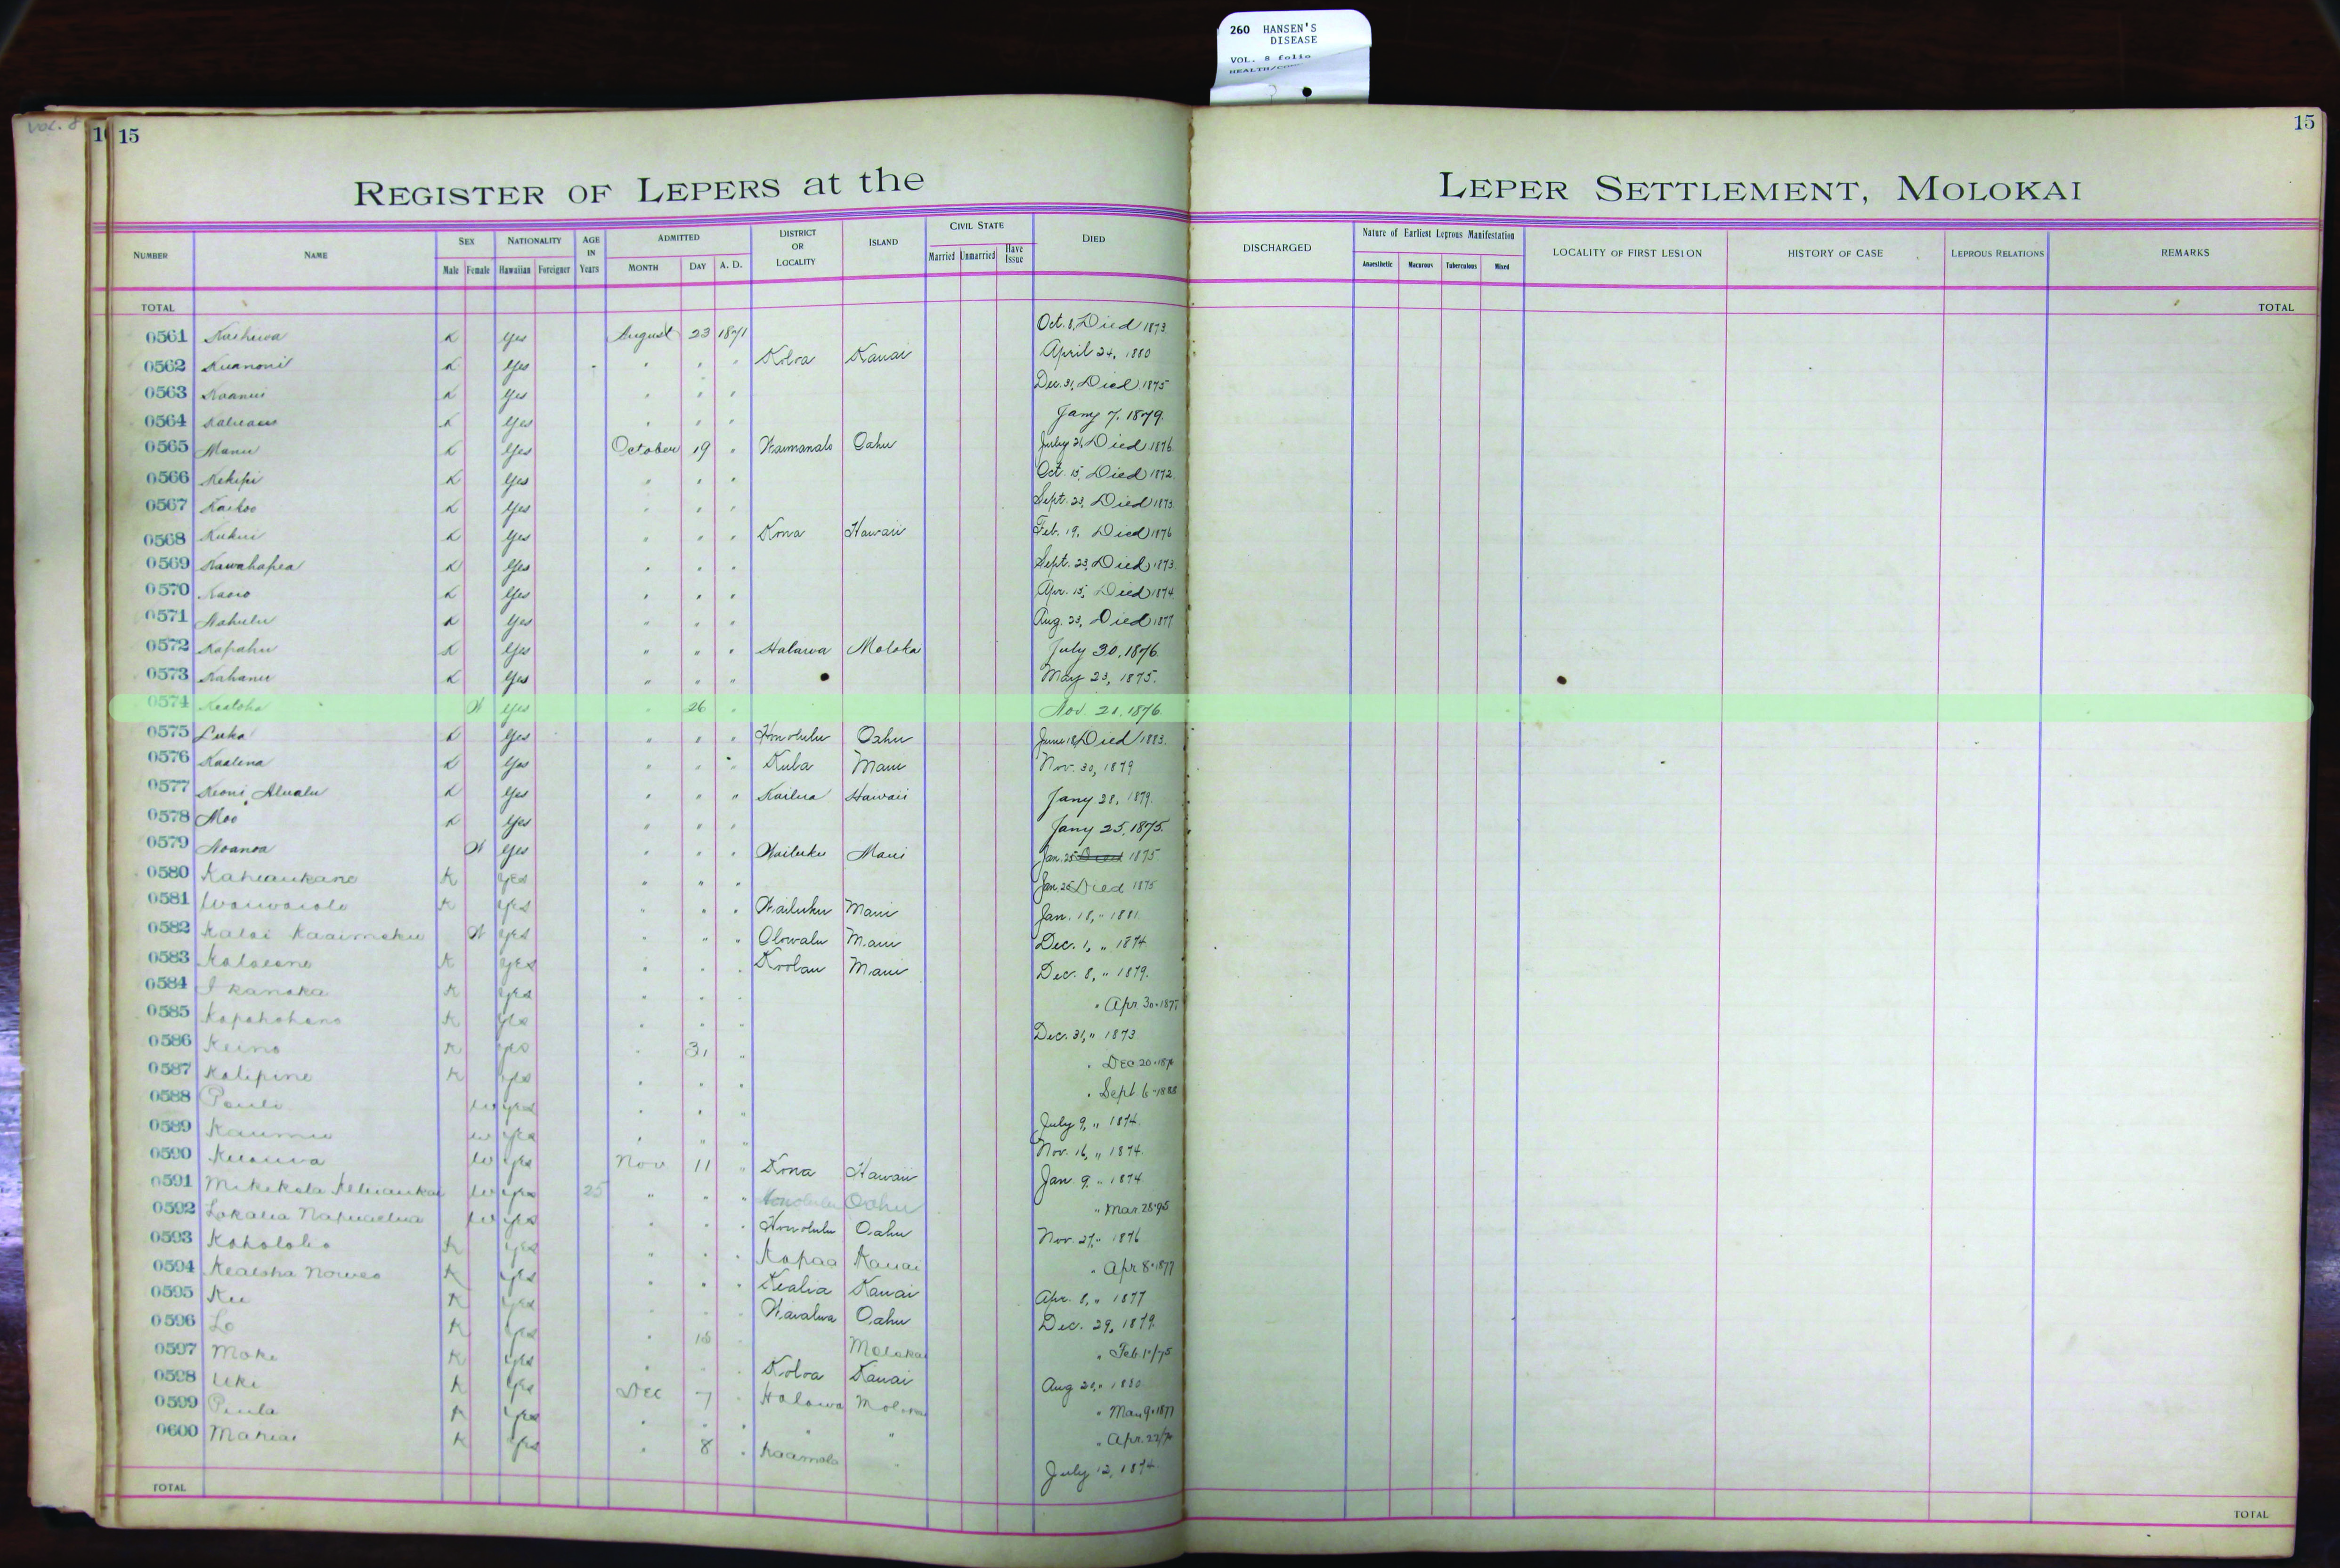 260 HANSEN'S
DISEASE
VOL. 8 folio
VOL. 8
15
15
REGISTER OF LEPERS at the LEPER SETTLEMENT, MOLOKAI
NUMBER NAME SEX Male Female NATIONALITY Hawaiian Foreigner AGE IN Years ADMITTED MONTH DAY A. D. DISTRICT OR LOCALITY ISLAND CIVIL STATE Married Unmarried Have Issue DIED DISCHARGED Nature of Earliest Leprous Manifestation Anaesthetic Macurous Tuberculous Mixed LOCALITY OF FIRST LESION HISTORY OF CASE LEPROUS RELATIONS REMARKS
TOTAL TOTAL
0561 K Yes August 23 1871 Oct. 8, Died 1873
0562 Kuanonii K Yes " " " Koloa Kauai April 24, 1880
0563 Koanui K Yes " " " Dec. 31, Died 1875
0564 K Yes " " " Jany 7, 1879
0565 Manu K Yes October 19 " Waimanalo Oahu July 21, Died 1876
0566 Kekipi K Yes " " " Oct. 15, Died 1872
0567 Kaikoo K Yes " " " Sept. 23, Died 1873
0568 Kukui K Yes " " " Kona Hawaii Feb. 19, Died 1876
0569 Kawahapea K Yes " " " Sept. 23, Died 1873
0570 K Yes " " " Apr. 15, Died 1874
0571 Nahulu K Yes " " " Aug. 23, Died 1877
0572 Kapahu K Yes " " " Halawa Moloka July 30, 1876
0573 Kahanu K Yes " " " May 23, 1875.
0574 Kealoha W Yes " 26 " Nov. 21, 1876
0575 Luka K Yes " " " Honolulu Oahu June 18, Died 1883
0576 Kaalena K Yes " " " Kula Maui Nov. 30, 1879
0577 Keoni Alualu K Yes " " " Kailua Hawaii Jany 28, 1879
0578 Moo K Yes " " " Jany 25, 1875.
0579 Noanoa W Yes " " " Wailuku Maui Jan. 25 Died 1875
0580 Kaheaukane K Yes " " " Jan. 25 Died 1875
0581 Waiwaiole K Yes " " " Wailuku Maui Jan. 18, " 1881
0582 Kalai Kaaimoku W Yes " " " Olowalu Maui Dec. 1, " 1874
0583 K Yes " " " Koolau Maui Dec. 8, " 1879.
0584 I kanaka K Yes " " " " Apr 30-187
0585 Kapahohano K Yes " " " Dec. 31, " 1873
0586 Keino K Yes " 31 " " Dec 20-187
0587 Kalipine K Yes " " " " Sept 6-1888
0588 Pauli W Yes " " " July 9, " 1874
0589 Kaumu W Yes " " " Nov. 16, " 1874
0590 W Yes Nov 11 " Kona Hawaii Jan 9 " 1874
0591 Mikikola W Yes 25 " " " Honolulu Oahu " Mar. 28-95
0592 Lokalia Napuaelua W Yes " " " Honolulu Oahu Nov. 27, " 1876
0593 Koholoho K Yes " " " Kapaa Kauai " Apr 8-1877
0594 Kealoha Noweo K Yes " " " Kealia Kauai Apr. 8, " 1877
0595 Ku K Yes " " " Waialua Oahu Dec. 29, 1879
0596 Lo K Yes " 18 " Molokai " Feb.
0597 Moke K Yes " " " Koloa Kauai Aug 20, " 1880
0598 Uki K Yes Dec 7 " Halawa " Mar 9-1877
0599 Piula K Yes " " " " " " Apr. 22/
0600 Mahiai K Yes " 8 " Kaamola " July 12, 1874
TOTAL TOTAL